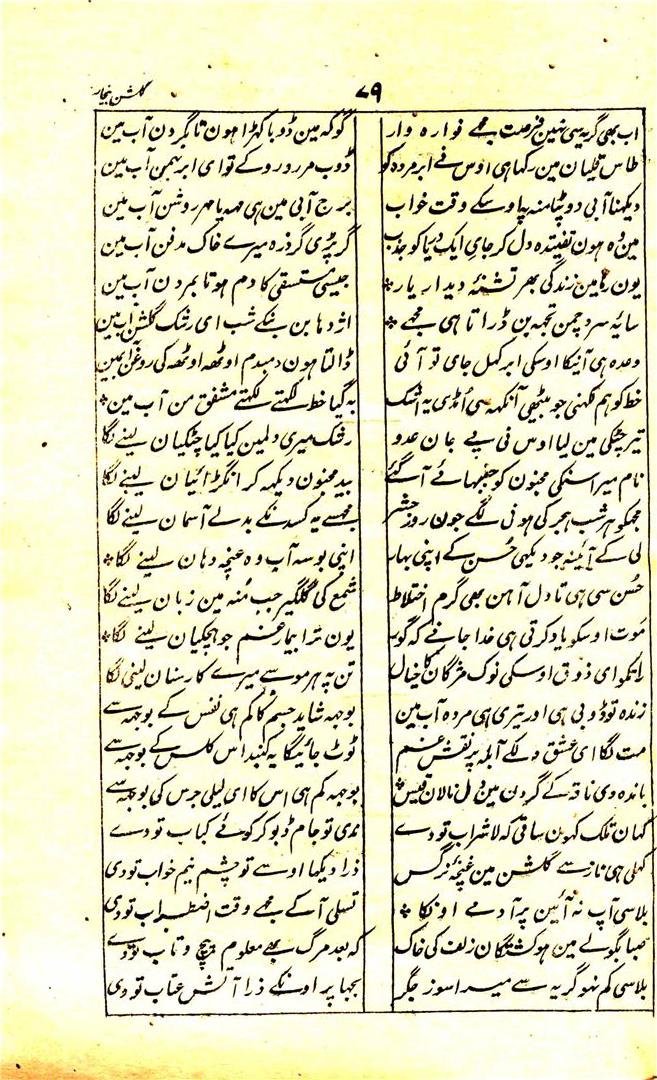 گلشن بیخار
۷۹
اب بھی گریہ سی نہین فرصت مجھے فوارہ وار گو کہ مین ڈوبا کھڑا ہون تا بگردن آب مین
طاس قلیان مین رکھا ہی اوس نے ابر مردہ کو ڈوب مر رو رو کے تو ای ابر بہمن آب مین
دیکھنا آبی دوپٹا منہ پہ اوسکے وقت خواب برج آبی مین ہی مہ یا مہر روشن آب مین
مین وہ ہون تفتیدہ دل کر جای ایک دریا کو جذب گر پڑی گر ذرہ میرے خاک مدفن آب مین
یون رہا مین زندگی بھر تشنۂ دیدار یار جیسی مستسقی کا دم ہوتا بمردن آب مین
سایہ سرو چمن تجھہ بن ڈراتا ہی مجھے اژدہا بن بنکے شب ای رشک گلشن آب مین
وعدہ ہی آنیکا اوسکی ابر کھل جای تو آئی ڈالتا ہون دمبدم اوٹھہ اوٹھہ کی روغن آب مین
خط کو ہم لکھنی جو بیٹھی آنکھہ سی اُمڈی یہ اشک بہ گیا خط لکھتے لکھتے مشفق من آب مین
تیر چٹکی مین لیا اوس نی پے جان عدو رشک میری دلمین کیا کیا چٹکیان لینے لگا
نام میرا سنکی مجنون کو جنبھائے آ گئے بید مجنون دیکھہ کر انگڑائیان لینے لگا
مجھکو ہر شب ہجر کی ہونی لگے جون روز حشر مجھسے یہ کس دنکے بدلے آسمان لینے لگا
لی کے آئینہ جو دیکھی حُسن کے اپنی بہار اپنی بوسہ آپ وہ غنچہ دہان لینے لگا
حُسن سی ہی تا دل آہن بھی گرم اختلاط شمع کی گلگیر جب مُنہ مین زبان لینے لگا
موت اوسکو یاد کرتی ہی خدا جانے کہ گور یون ترا بیمار غم جو ہچکیان لینے لگا
رات کو ای ذوق اوسکی نوک مژگان کا خیال تن پہ ہر مو سے میرے کار سنان لینی لگا
زندہ تو ڈوبی ہی اور تیری ہی مردہ آب مین بوجھہ شاید جسم کا کم ہی نفس کے بوجھہ سے
مت لگا ای عشق دلکے آبلہ پر نقش غم ٹوٹ جائیگا یہ گنبد اس کلس کے بوجھہ سے
باندہ دی ناقہ کے گردن مین دل نالان قیس بوجھہ کم ہی اس کا ای لیلی جرس کی بوجھہ سے
کہان تلک کہون ساقی کہ لا شراب تو دے ندی تو جام ڈبو کر کوئے کباب تو دے
کھلی ہی ناز سے گلشن مین غنچۂ نرگس ذرا دیکھا اوسے تو چشم نیم خواب تو دی
بلا سی آپ نہ آئین پر آدمے اونکا تسلی آکے مجھے وقت اضطراب تو دی
صبا بگولے مین ہو کشتگان زلف کی خاک کہ بعد مرگ بھے معلوم پیچ و تاب تو دے
بلا سی کم نہو گریہ سے میرا سوز جگر بجھا پر اونکے ذرا آتش عتاب تو دی